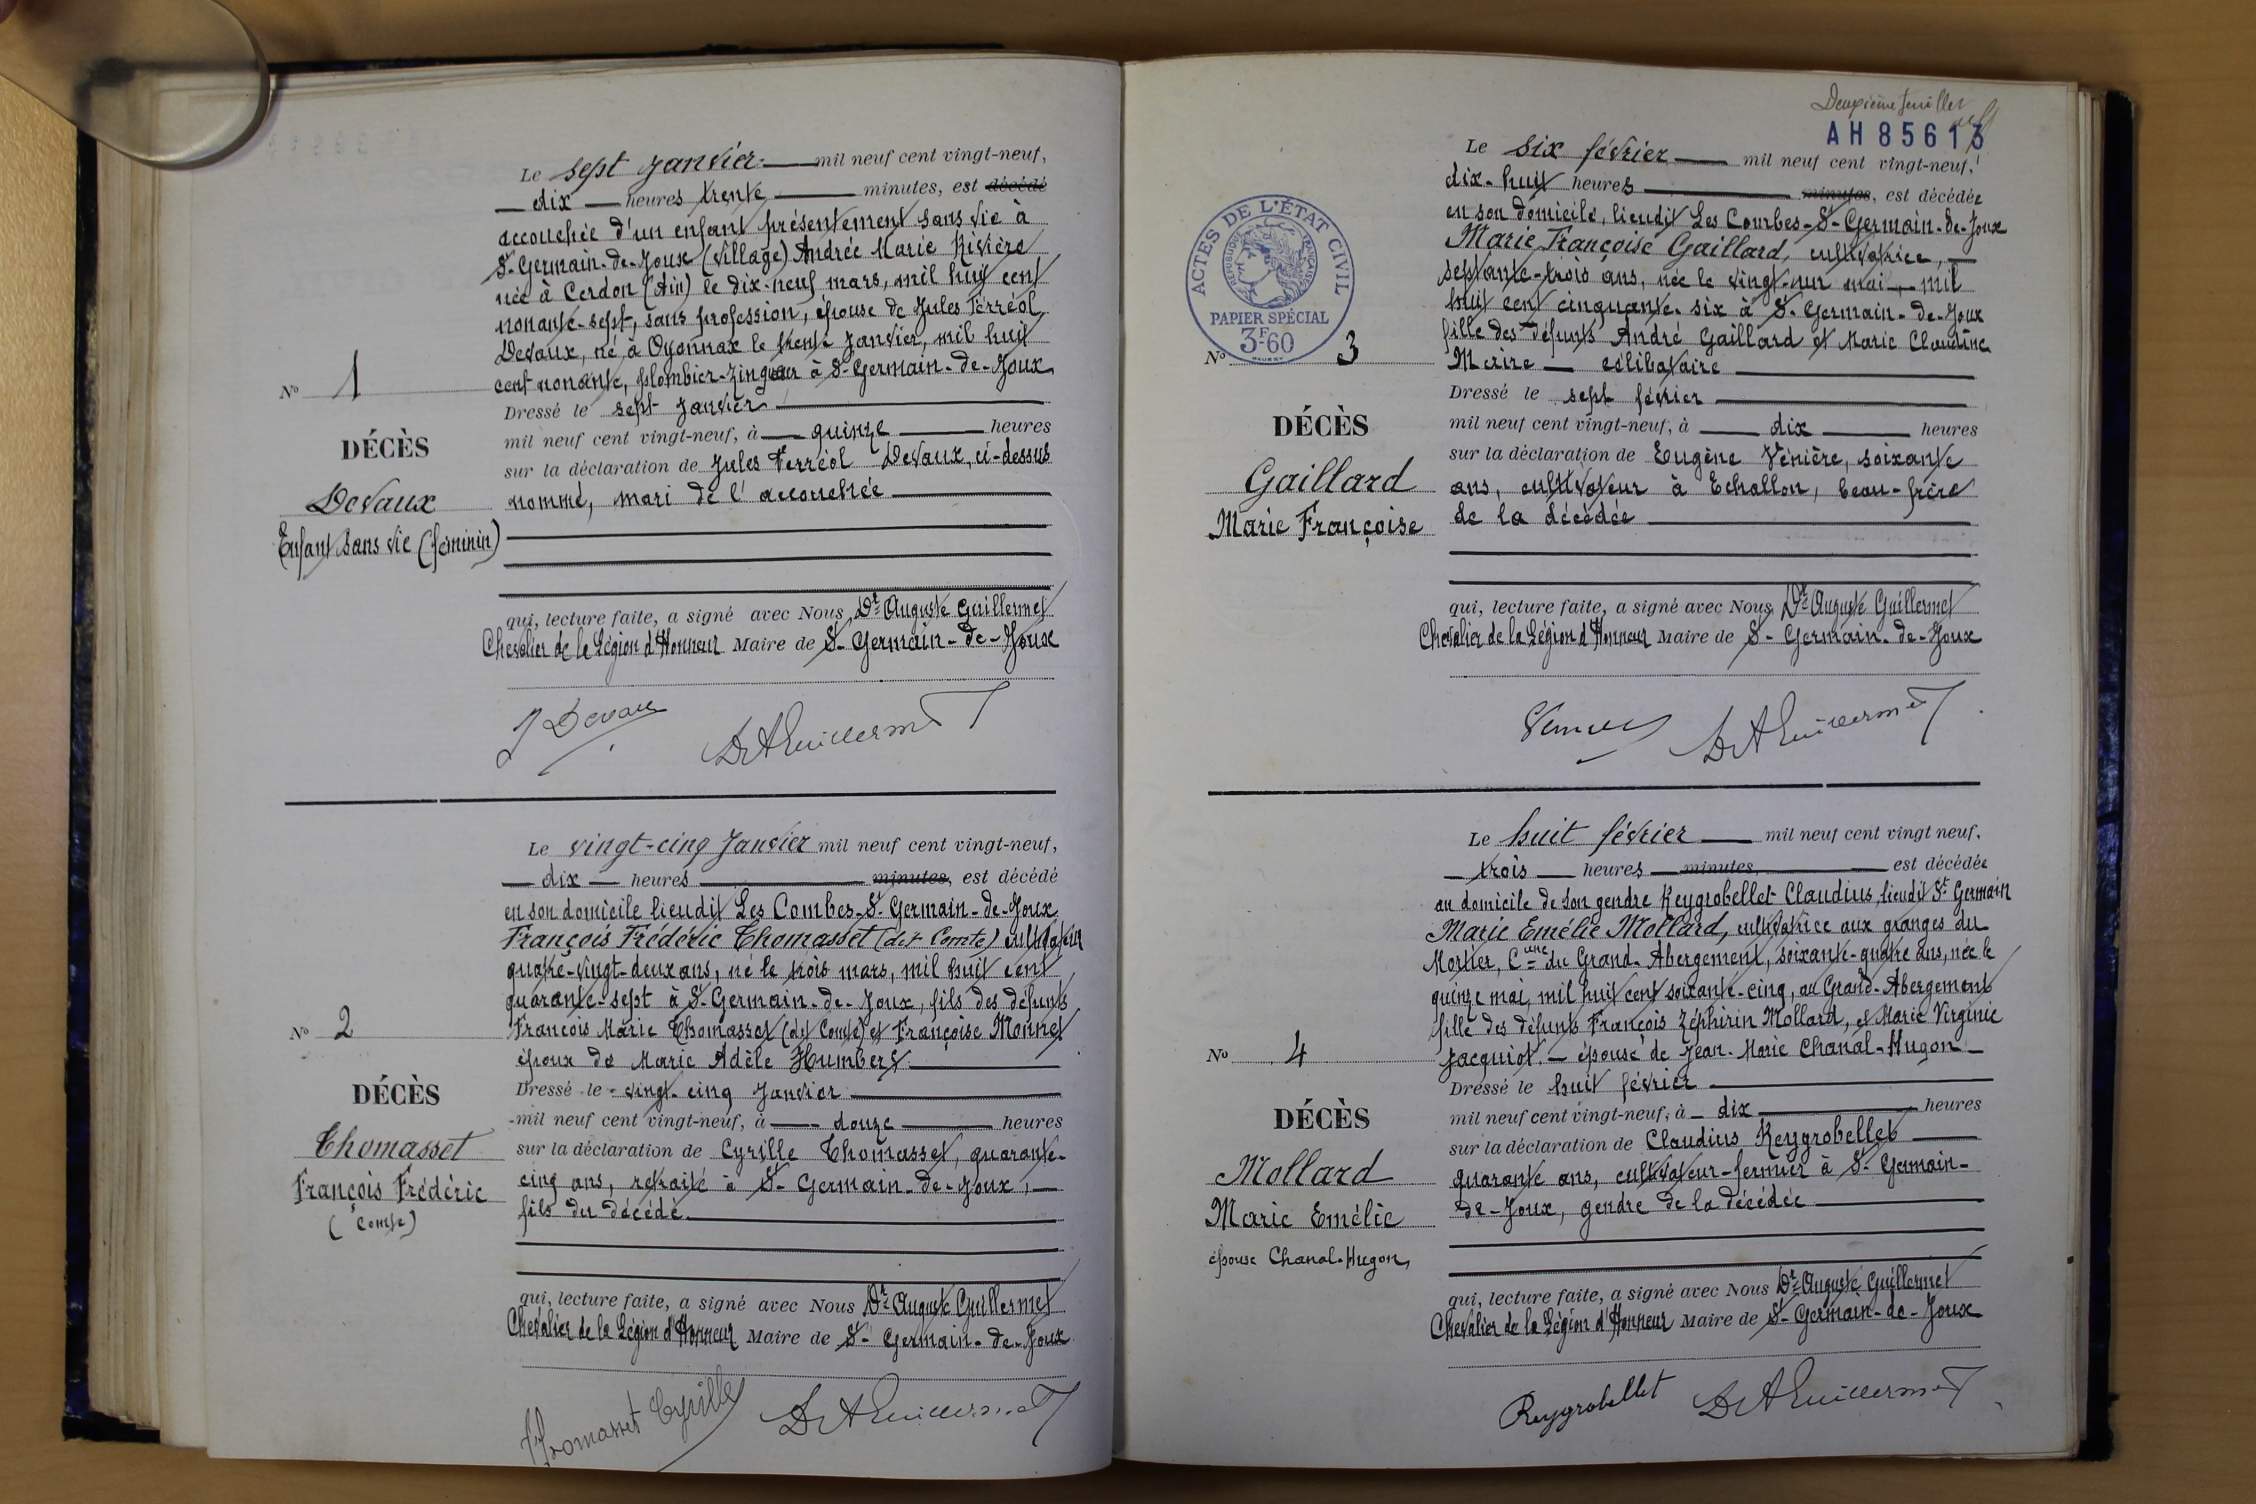 Le sept janvier mil neuf cent vingt-neuf,
dix heures trente minutes, est décédé
accouchée d'un enfant présentement sans vie à
St-Germain-de-Joux (village) Andrée Marie Rivière
née à Cerdon (Ain) le dix-neuf mars, mil huit cent
nonante-sept, sans profession, épouse de Jules Ferréol
Devaux, né à Oyonnax le trente janvier, mil huit
cent nonante, plombier-zingueur à St-Germain-de-Joux
No 1
Dressé le sept janvier
mil neuf cent vingt-neuf, à quinze heures
DÉCÈS
sur la déclaration de Jules Ferréol Devaux, ci-dessus
Devaux
nommé, mari de l'accouchée
Enfant sans vie (féminin)
qui, lecture faite, a signé avec Nous, Dr Auguste Guillermet
Chevalier de la Légion d'Honneur Maire de St-Germain-de-Joux
J Devaux
Dr A Guillermet
Le vingt-cinq janvier mil neuf cent vingt-neuf,
dix heures minutes, est décédé
en son domicile lieudit Les Combes-St-Germain-de-Joux
François Frédéric Thomasset (dit Comte) cultivateur
quatre-vingt-deux ans, né le trois mars, mil huit cent
quarante-sept à St-Germain-de-Joux, fils des défunts
François Marie Thomasset (dit Comte) et Françoise Monnet
No 2
époux de Marie Adèle Humbert
Dressé le vingt-cinq janvier
DÉCÈS
mil neuf cent vingt-neuf, à douze heures
Thomasset
sur la déclaration de Cyrille Thomasset, quarante-
François Frédéric
cinq ans, retraité à St-Germain-de-Joux,
(Comte)
fils du décédé
qui, lecture faite, a signé avec Nous Dr Auguste Guillermet
Chevalier de la Légion d'Honneur Maire de St-Germain-de-Joux
Thomasset Cyrille
Dr A Guillermet
Deuxième feuillet
AH 85613
ACTES DE L'ÉTAT CIVIL
RÉPUBLIQUE FRANÇAISE
PAPIER SPÉCIAL
3F60
Le six février mil neuf cent vingt-neuf,
dix-huit heures minutes, est décédée
en son domicile, lieudit Les Combes-St-Germain-de-Joux
Marie Françoise Gaillard, cultivatrice,
septante-trois ans, née le vingt-un mai, mil
huit cent cinquante-six à St-Germain-de-Joux
fille des défunts André Gaillard et Marie Claudine
No 3
célibataire
Dressé le sept février
DÉCÈS
mil neuf cent vingt-neuf, à dix heures
sur la déclaration de Eugène Vénière, soixante
Gaillard
ans, cultivateur à Echallon, beau-frère
Marie Françoise
de la décédée
qui, lecture faite, a signé avec Nous, Dr Auguste Guillermet
Chevalier de la Légion d'Honneur Maire de St-Germain-de-Joux
Dr A Guillermet
Le huit février mil neuf cent vingt neuf,
trois heures minutes, est décédée
au domicile de son gendre Reygrobellet Claudius, lieudit St Germain
Marie Emélie Mollard, cultivatrice aux granges du
Mortier, Cune du Grand-Abergement, soixante-quatre ans, née le
quinze mai, mil huit cent soixante-cinq, au Grand-Abergement
fille des défunts François Zéphirin Mollard, et Marie Virginie
No 4
Jacquiot. - épouse de Jean-Marie Chanal-Hugon
Dressé le huit février
DÉCÈS
mil neuf cent vingt-neuf, à dix heures
sur la déclaration de Claudius Reygrobellet
Mollard
quarante ans, cultivateur-fermier à St-Germain-
Marie Emélie
de-Joux, gendre de la décédée
épouse Chanal-Hugon,
qui, lecture faite, a signé avec Nous Dr Auguste Guillermet
Chevalier de la Légion d'Honneur Maire de St-Germain-de-Joux
Reygrobellet
Dr A Guillermet